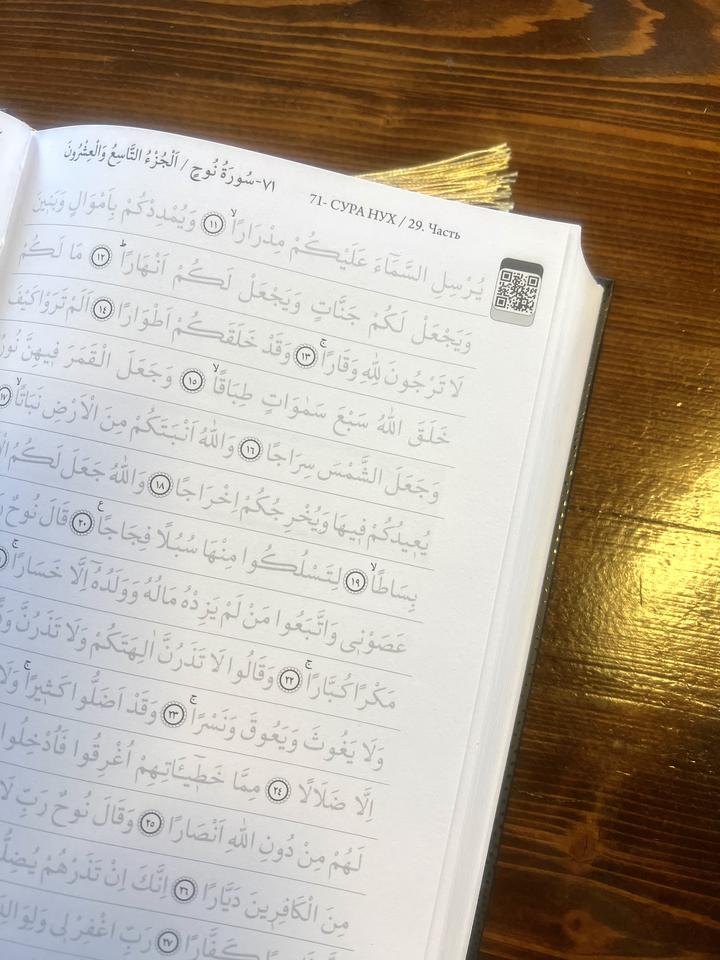 ٧١-سُورَةُ نُوحٍ / اَلْجُزْءُ التَّاسِعُ وَالْعِشْرُونَ
71- СУРА НУХ / 29. Часть
يُرْسِلِ السَّمَٓاءَ عَلَيْكُمْ مِدْرَارًاۙ ﴿١١﴾ وَيُمْدِدْكُمْ بِاَمْوَالٍ وَبَن۪ينَ
وَيَجْعَلْ لَكُمْ جَنَّاتٍ وَيَجْعَلْ لَكُمْ اَنْهَارًاۜ ﴿١٢﴾ مَا لَكُمْ
لَا تَرْجُونَ لِلّٰهِ وَقَارًاۚ ﴿١٣﴾ وَقَدْ خَلَقَكُمْ اَطْوَارًا ﴿١٤﴾ اَلَمْ تَرَوْا كَيْفَ
خَلَقَ اللّٰهُ سَبْعَ سَمٰوَاتٍ طِبَاقًاۙ ﴿١٥﴾ وَجَعَلَ الْقَمَرَ ف۪يهِنَّ
وَجَعَلَ الشَّمْسَ سِرَاجًا ﴿١٦﴾ وَاللّٰهُ اَنْبَتَكُمْ مِنَ الْاَرْضِ نَبَاتًاۙ ﴿١٧﴾
يُع۪يدُكُمْ ف۪يهَا وَيُخْرِجُكُمْ اِخْرَاجًا ﴿١٨﴾ وَاللّٰهُ جَعَلَ لَكُمُ
بِسَاطًاۙ ﴿١٩﴾ لِتَسْلُكُوا مِنْهَا سُبُلًا فِجَاجًا۟ ﴿٢٠﴾ قَالَ نُوحٌ
عَصَوْن۪ى وَاتَّبَعُوا مَنْ لَمْ يَزِدْهُ مَالُهُ وَوَلَدُهُٓ اِلَّا خَسَارًاۚ
مَكْرًا كُبَّارًاۚ ﴿٢٢﴾ وَقَالُوا لَا تَذَرُنَّ اٰلِهَتَكُمْ وَلَا تَذَرُنَّ
وَلَا يَغُوثَ وَيَعُوقَ وَنَسْرًاۚ ﴿٢٣﴾ وَقَدْ اَضَلُّوا كَث۪يرًاۚ وَلَا
اِلَّا ضَلَالًا ﴿٢٤﴾ مِمَّا خَط۪ٓيـَٔاتِهِمْ اُغْرِقُوا فَاُدْخِلُوا
لَهُمْ مِنْ دُونِ اللّٰهِ اَنْصَارًا ﴿٢٥﴾ وَقَالَ نُوحٌ رَبِّ لَا
مِنَ الْكَافِر۪ينَ دَيَّارًا ﴿٢٦﴾ اِنَّكَ اِنْ تَذَرْهُمْ
كَفَّارًا ﴿٢٧﴾ رَبِّ اغْفِرْ ل۪ى